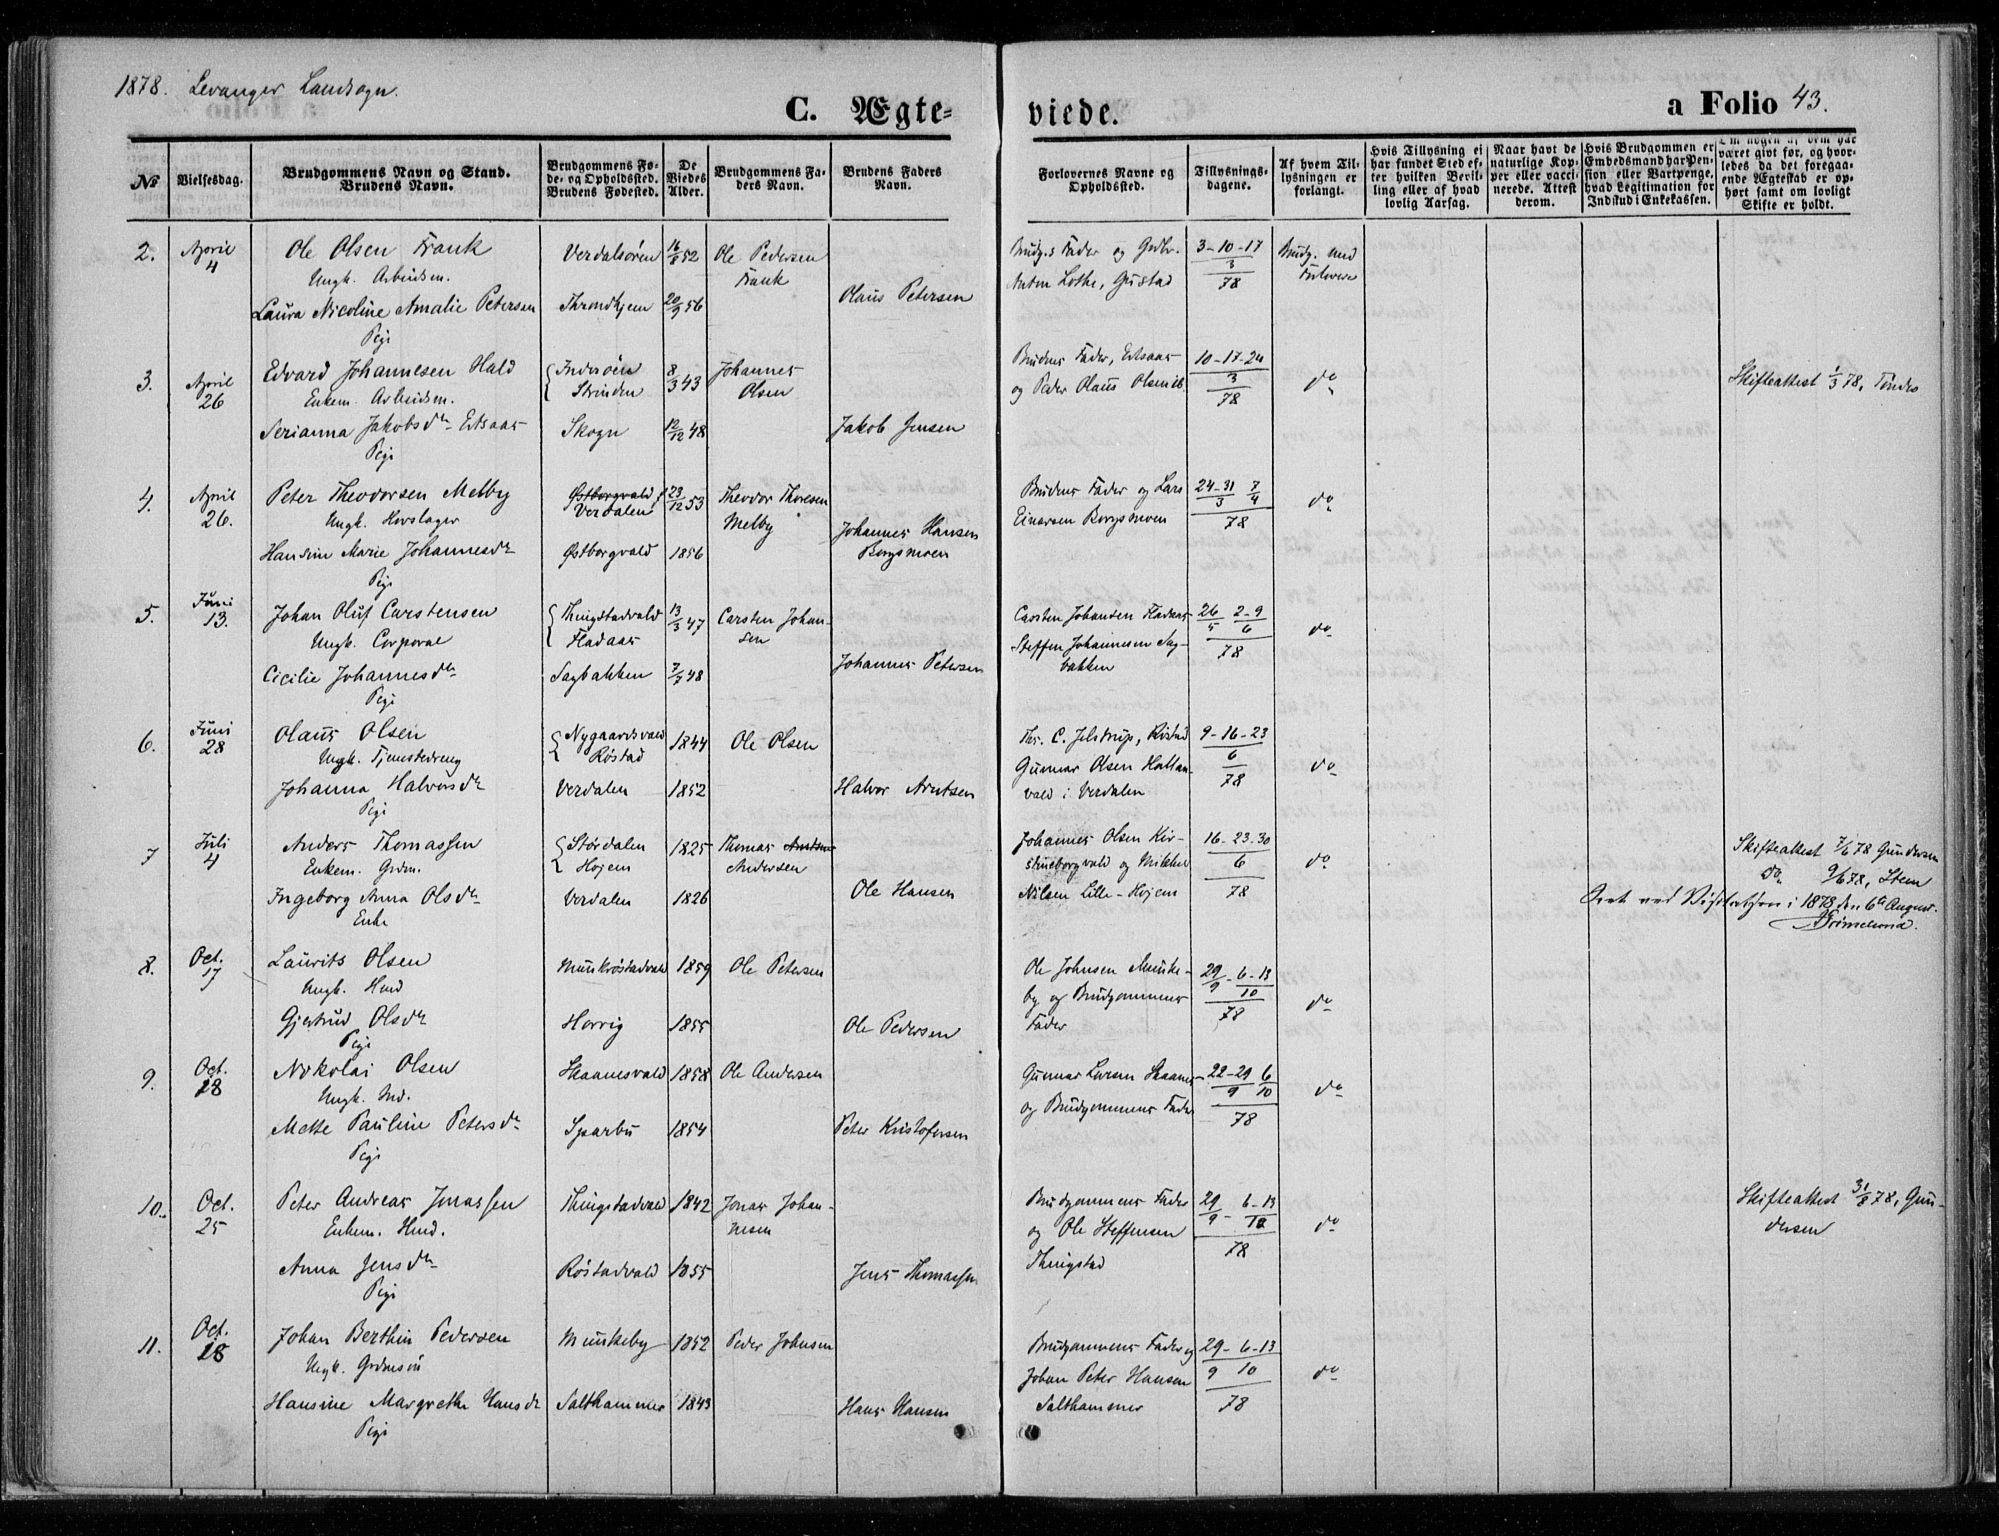 1878. Levanger Landsogn.
C. Ægte-
viede.
a Folio 43.
No
Vielsesdag.
Brudgommens Navn og Stand.
Brudens Navn.
Brudgommens Fø-
de- og Opholdssted.
Brudens Fødested.
De
Viedes
Alder.
Brudgommens Fa-
ders Navn.
Brudens Faders
Navn.
Forlovernes Navne og
Opholdssted.
Tillysnings-
dagene.
Af hvem Til-
lysningen er
forlangt.
Hvis Tillysning ei
har fundet Sted ef-
ter hvilken Bevil-
ling eller af hvad
lovlig Aarsag.
Naar havt de
naturlige Kop-
per eller vacci-
nerede. Attest
derom.
Hvis Brudgommen er
Embedsmand har Pen-
sion eller Vartpenge,
hvad Legitimation for
Indskud i Enkekassen.
Om nogen af dem har
været givt før, og hvor-
ledes da det foregaa-
ende Ægteskab er op-
hørt samt om lovligt
Skifte er holdt.
2. April 4 Ole Olsen Frank Verdalsøren 16/8 52 Ole Pedersen Brudg.s Fader og Grdbr. 3-10-17 Brudg. med
Ungk. Arbeidsm. Frank Anton Lothe, Gustad 3 78 Forlovere
Laura Nicoline Amalie Petersen Throndhjem 20/9 56 Olaus Petersen
Pige
3. April 26 Edvard Johannesen Hald Inderøen 8/3 43 Johannes Brudens Fader, 10-17-24 do Skifteattest 1/3 78,
Enkem. Arbeidsm. Strinden Olsen og Peder Olaus Olsen 3 78
Serianna Jakobsdr Skogn 12/12 48 Jakob Jensen
Pige
4. April 26. Peter Theodorsen Melby Østborgvald 23/12 53 Theodor Thoresen Brudens Fader og Lars 24-31 7 do
Ungk. Hovslager Verdalen Melby Einarsen Borgsmoen 3 4 78
Hansine Marie Johannesdr Østborgvald 1856 Johannes Hansen
Pige Borgsmoen
5. Juni 13. Johan Oluf Carstensen Thingstadvald 13/3 47 Carsten Johan- Carsten Johansen Fladaas 26 2-9 do
Ungk. Corporal Fladaas sen Steffen Johannesen Sag- 5 6 78
Cicilie Johannesdr Sagbakken 7/7 48 Johannes Petersen bakken
Pige
6. Juni 28 Olaus Olsen Nygaardsvald 1844 Ole Olsen Chr. C. Jelstrup, Røstad 9-16-23 do
Ungk. Tjenestedreng Røstad Gunnar Olsen Hallan- 6 78
Johanna Halvorsdr Verdalen 1852 Halvor Arntsen vald i Verdalen
Pige
7 Juli 4 Anders Thomassen Størdalen 1825 Thomas Arntsen Johannes Olsen Kir- 16-23-30 do Skifteattest 7/6 78 Gundersen
Enkem. Grdm. Hojem Andersen stineborgvald og Mikkel 6 do 9/6 78, Steen
Ingeborg Anna Olsdr Verdalen 1826 Ole Hansen Nilsen Lille-Hojem 78
Enke Seet ved Visitatsen i 1878 den 6te August.
8. Oct. 17 Laurits Olsen Munkrøstadvald 1859 Ole Petersen Ole Johnsen Munke- 29 - 6-13 do
Ungk. Hmd by og Brudgommens 9 10 78
Gjertrud Olsdr Horrig 1855 Ole Pedersen Fader
Pige
9. Oct. 18 Nikolai Olsen Skaanesvald 1858 Ole Andersen Gunnar Larsen Skaanes 22-29 6 do
Ungk. Ind. og Brudgommens Fader 9 10 78
Mette Pauline Petersdr Sparbu 1854 Peter Kristofersen
Pige
10. Oct. 25 Peter Andreas Jonassen Thingstadvald 1842 Jonas Johan- Brudgommens Fader 29 - 6-13 do Skifteattest 31/8 78, Gun-
Enkem. Hmd. nesen og Ole Steffensen 9 10 78 dersen
Anna Jensdr Røstadvald 1855 Jens Thomassen Thingstad
Pige
11. Oct. 18 Johan Berthin Pedersen Munkeby 1852 Peder Johnsen Brudgommens Fader og 29-6-13 do
Ungk. Grdmsøn Johan Peter Hansen 9 10
Hansine Margrethe Hansdr Salthammer 1843 Hans Hansen Salthammer 78
Pige